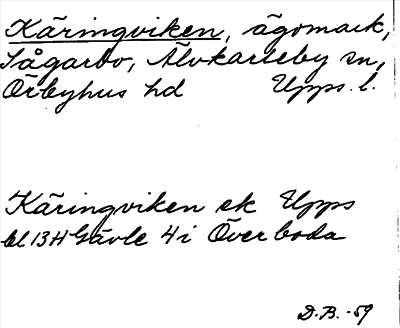 Käringviken, ägomark,
Tågarbo, Älvkarleby sn,
Örbyhus hd Upps. l.
Käringviken ek Upps
bl 13H Gävle 4 i Överboda
D.B. -59